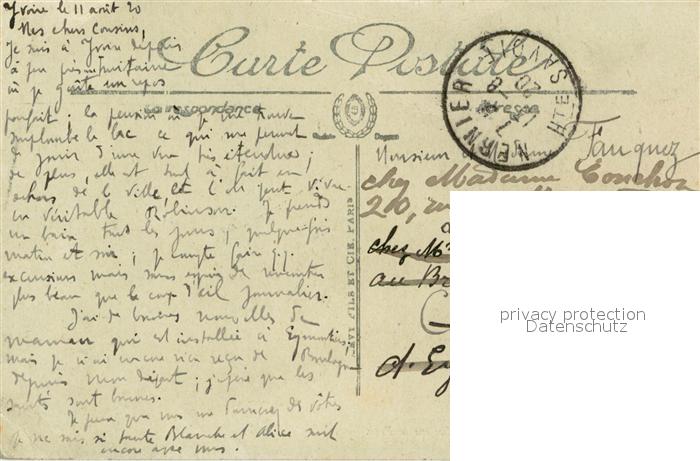 Yvoire le 11 août 20
Mes chers Cousins,
Je suis à Yvoire depuis
à peu près une
où je goûte un repos
parfait ; la pension où je me trouve
surplombe le lac ce qui me permet
de jouir d'une vue très étendue ;
de plus, elle est tout à fait en
dehors de la ville, et l'on peut vivre
en véritable Robinson. Je prends
un bain tous les jours ; quelquefois
matin et soir ; je compte faire qq.
excursions mais sans espoir de rencontrer
plus beau que le coup d'œil journalier.
J'ai de bonnes nouvelles de
maman qui est installée à Eymoutiers
mais je n'ai encore rien reçu de Boulogne
depuis mon départ ; j'espère que les
santés sont bonnes.
Je pense que vous me donnerez des vôtres
je ne sais si tante Blanche et Alice sont
encore avec vous.
Carte Postale
Correspondance
Adresse
LEVY FILS ET CIE, PARIS
NERNIER
HTE SAVOIE
20
Monsieur Fauquez
chez Madame Couchoz
210, 
chez Mr
au Br
privacy protection
Datenschutz
d'Ey